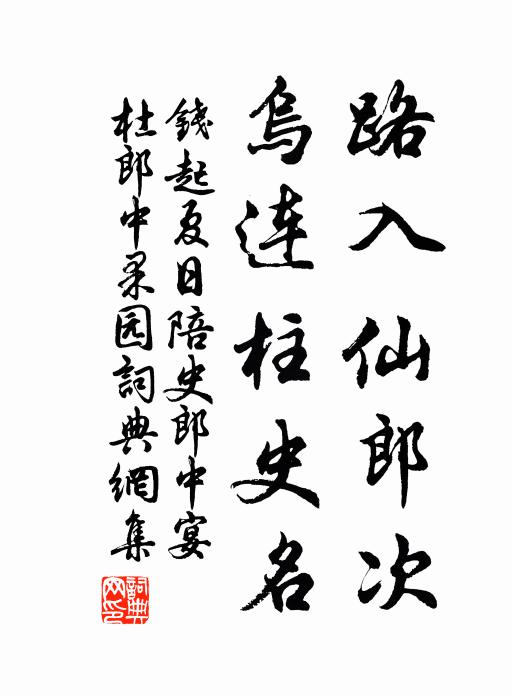 路入仙郎次
烏連柱史名
錢起夏日陪史郎中宴
杜郎中果园詞典網集
詞典
网印